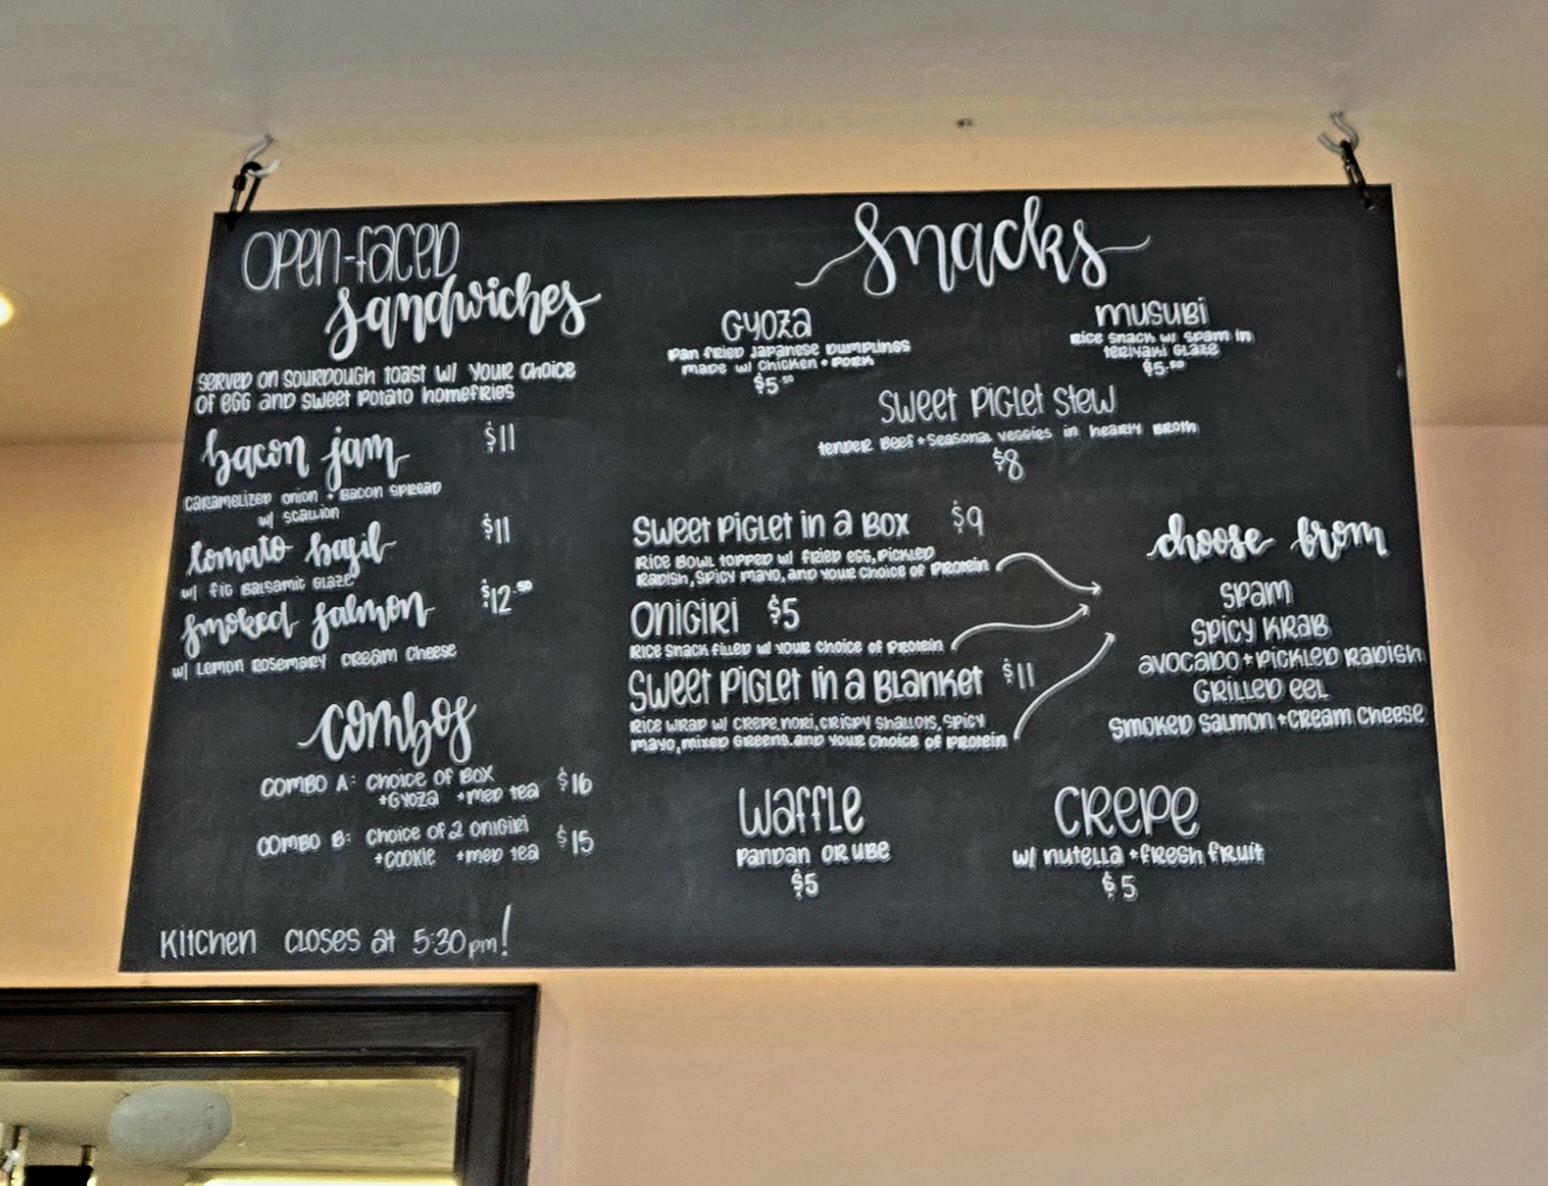 OPEN-FACED
sandwiches
SERVED ON SOURDOUGH TOAST W/ YOUR CHOICE
OF EGG AND SWEET POTATO HOMEFRIES
bacon jam $11
CARAMELIZED ONION + BACON SPREAD
W/ SCALLION
tomato basil $11
W/ FIG BALSAMIC GLAZE
smoked salmon $12.50
W/ LEMON ROSEMARY CREAM CHEESE
combos
COMBO A: CHOICE OF BOX $16
+GYOZA +MED TEA
COMBO B: CHOICE OF 2 ONIGIRI $15
+COOKIE +MED TEA
KITCHEN CLOSES AT 5:30pm!
Snacks
GYOZA
PAN FRIED JAPANESE DUMPLINGS
MADE W/ CHICKEN + PORK
$5.50
MUSUBI
RICE SNACK W/ SPAM IN
TERIYAKI GLAZE
$5.50
SWEET PIGLET STEW
TENDER BEEF + SEASONAL VEGGIES IN HEARTY BROTH
$8
SWEET PIGLET IN A BOX $9
RICE BOWL TOPPED W/ FRIED EGG, PICKLED
RADISH, SPICY MAYO, AND YOUR CHOICE OF PROTEIN
ONIGIRI $5
RICE SNACK FILLED W/ YOUR CHOICE OF PROTEIN
SWEET PIGLET IN A BLANKET $11
RICE WRAP W/ CREPE, NORI, CRISPY SHALLOTS, SPICY
MAYO, MIXED GREENS, AND YOUR CHOICE OF PROTEIN
choose from
SPAM
SPICY KRAB
AVOCADO + PICKLED RADISH
GRILLED EEL
SMOKED SALMON + CREAM CHEESE
WAFFLE
PANDAN OR UBE
$5
CREPE
W/ NUTELLA + FRESH FRUIT
$5